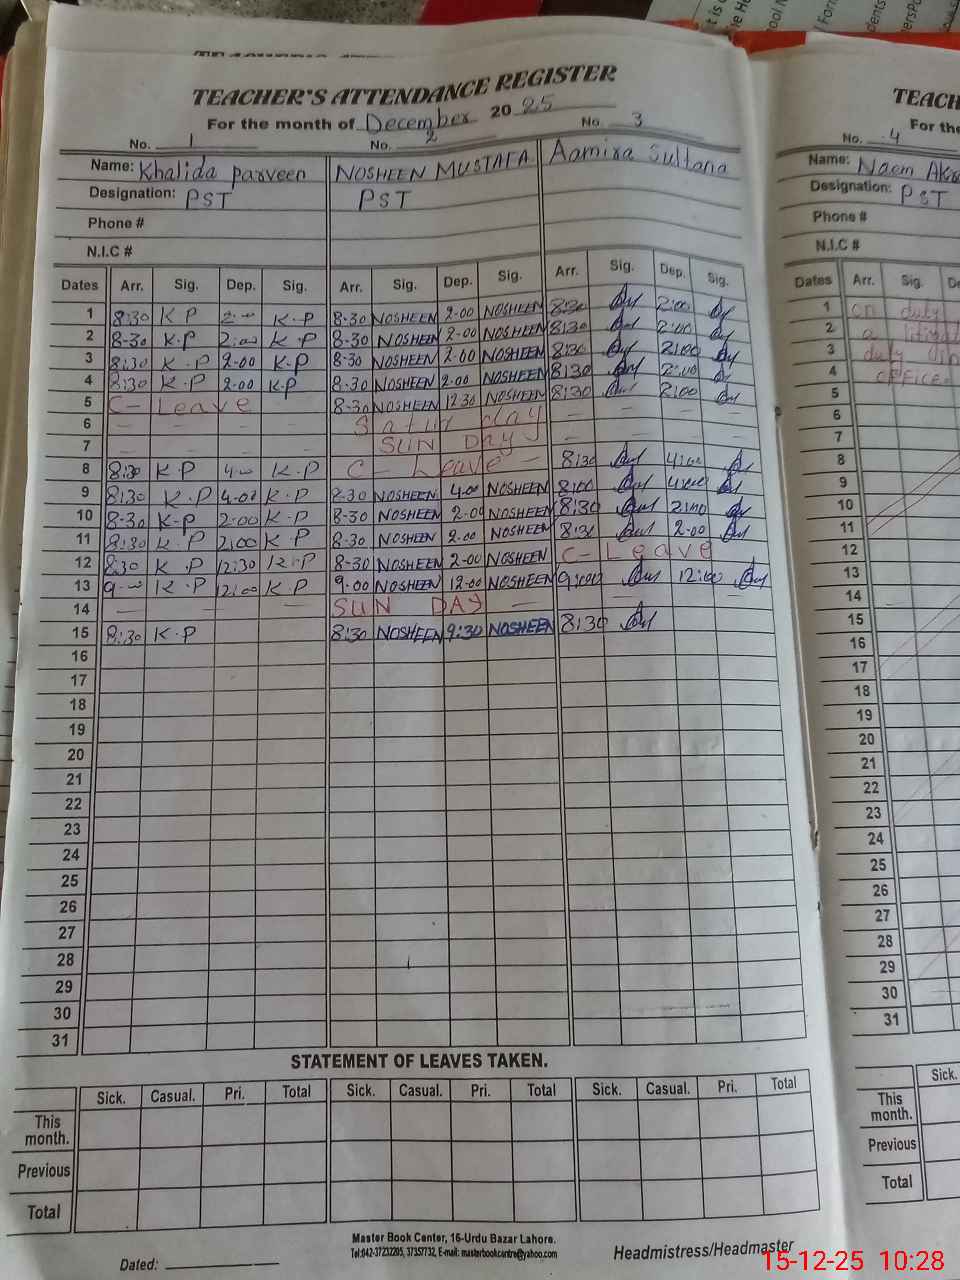 TEACHER'S ATTENDANCE REGISTER
For the month of December 2025
No. 1 No. 2 No. 3
Name: Khalida Parveen NOSHEEN MUSTAFA Aamira Sultana
Designation: PST PST
Phone #
N.I.C #
Dates Arr. Sig. Dep. Sig. Arr. Sig. Dep. Sig. Arr. Sig. Dep. Sig.
1 8:30 K P 2:00 K.P 8-30 NOSHEEN 2-00 NOSHEEN 8:30 2:00
2 8-30 K.P 2:00 K.P 8-30 NOSHEEN 2-00 NOSHEEN 8:30 2:00
3 8:30 K.P 2-00 K.P 8-30 NOSHEEN 2-00 NOSHEEN 8:30 2:00
4 8:30 K.P 2-00 K.P 8-30 NOSHEEN 2-00 NOSHEEN 8:30 2:00
5 C- Leave 8-30 NOSHEEN 12 30 NOSHEEN 8:30 2:00
6 – – – Satur day – – –
7 – – – SUN Day – – –
8 8:30 K.P 4:00 K.P C- Leave – 8:30 4:00
9 8:30 K.P 4-00 K.P 8-30 NOSHEEN 4-00 NOSHEEN 8:00 4:00
10 8-30 K-P 2:00 K.P 8-30 NOSHEEN 2-00 NOSHEEN 8:30 2:00
11 8:30 K.P 2:00 K.P 8-30 NOSHEEN 2-00 NOSHEEN 8:30 2-00
12 8:30 K.P 12:30 K.P 8-30 NOSHEEN 2-00 NOSHEEN C- Leave
13 9-00 K.P 12:00 K.P 9-00 NOSHEEN 12-00 NOSHEEN 9:00 12:00
14 – – – SUN DAY – – – –
15 8:30 K.P 8:30 NOSHEEN 9:30 NOSHEEN 8:30
16
17
18
19
20
21
22
23
24
25
26
27
28
29
30
31
STATEMENT OF LEAVES TAKEN.
Sick. Casual. Pri. Total Sick. Casual. Pri. Total Sick. Casual. Pri. Total
This month.
Previous
Total
Master Book Center, 16-Urdu Bazar Lahore.
Tel:042-37232205, 37357732, E-mail: masterbookcentre@yahoo.com
Dated: Headmistress/Headmaster
TEACH
For the
No. 4
Name: Naem
Designation: PST
Phone #
N.I.C #
Dates Arr. Sig. De
1 on duty
2 a
3 duty
4 office
5
6
7
8
9
10
11
12
13
14
15
16
17
18
19
20
21
22
23
24
25
26
27
28
29
30
31
Sick.
This month.
Previous
Total
15-12-25 10:28